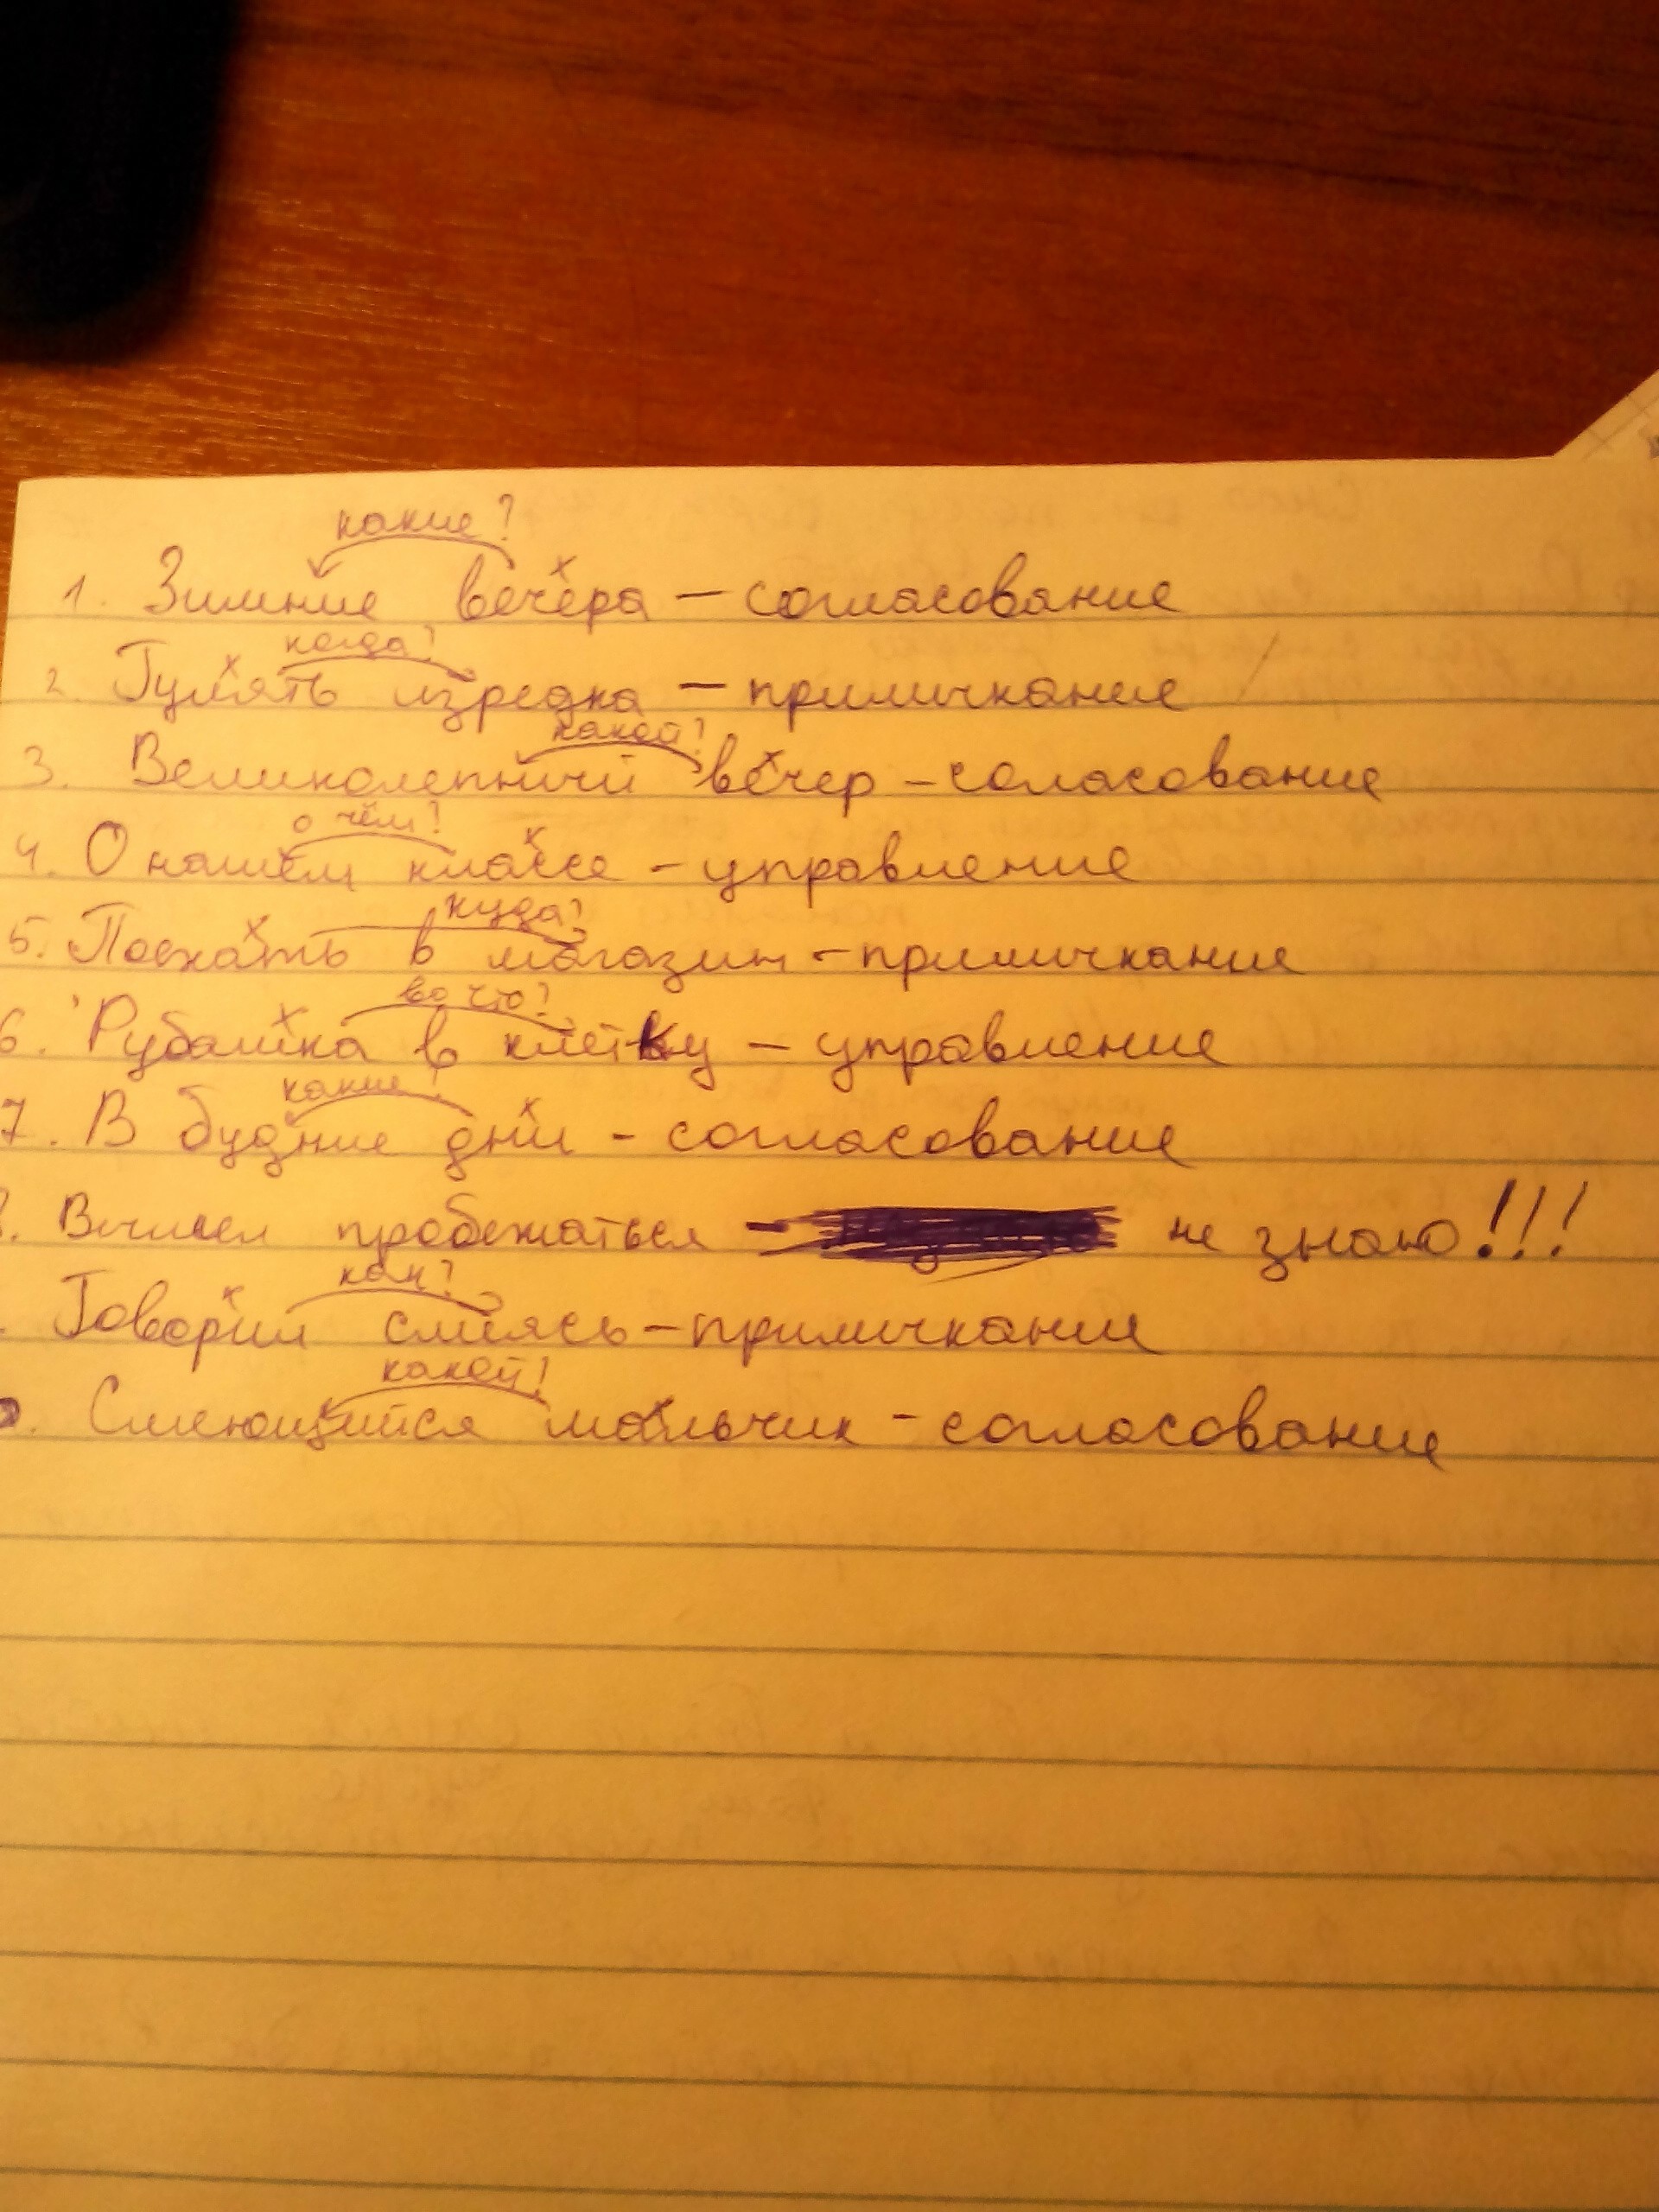 какие?
1. Зимние вечера – согласование
когда?
2. Гулять изредка – примычкание
какой?
3. Великолепный вечер – соласование
о чём?
4. О нашем классе – управление
куда?
5. Поехать в магазин – примычкание
во что?
6. Рубашка в клетку – управление
какие?
7. В будние дни – согласование
. Вышел пробежаться – не знаю!!!
как?
. Говорил смеясь – примычкание
какой?
. Смеющийся мальчик – согласование